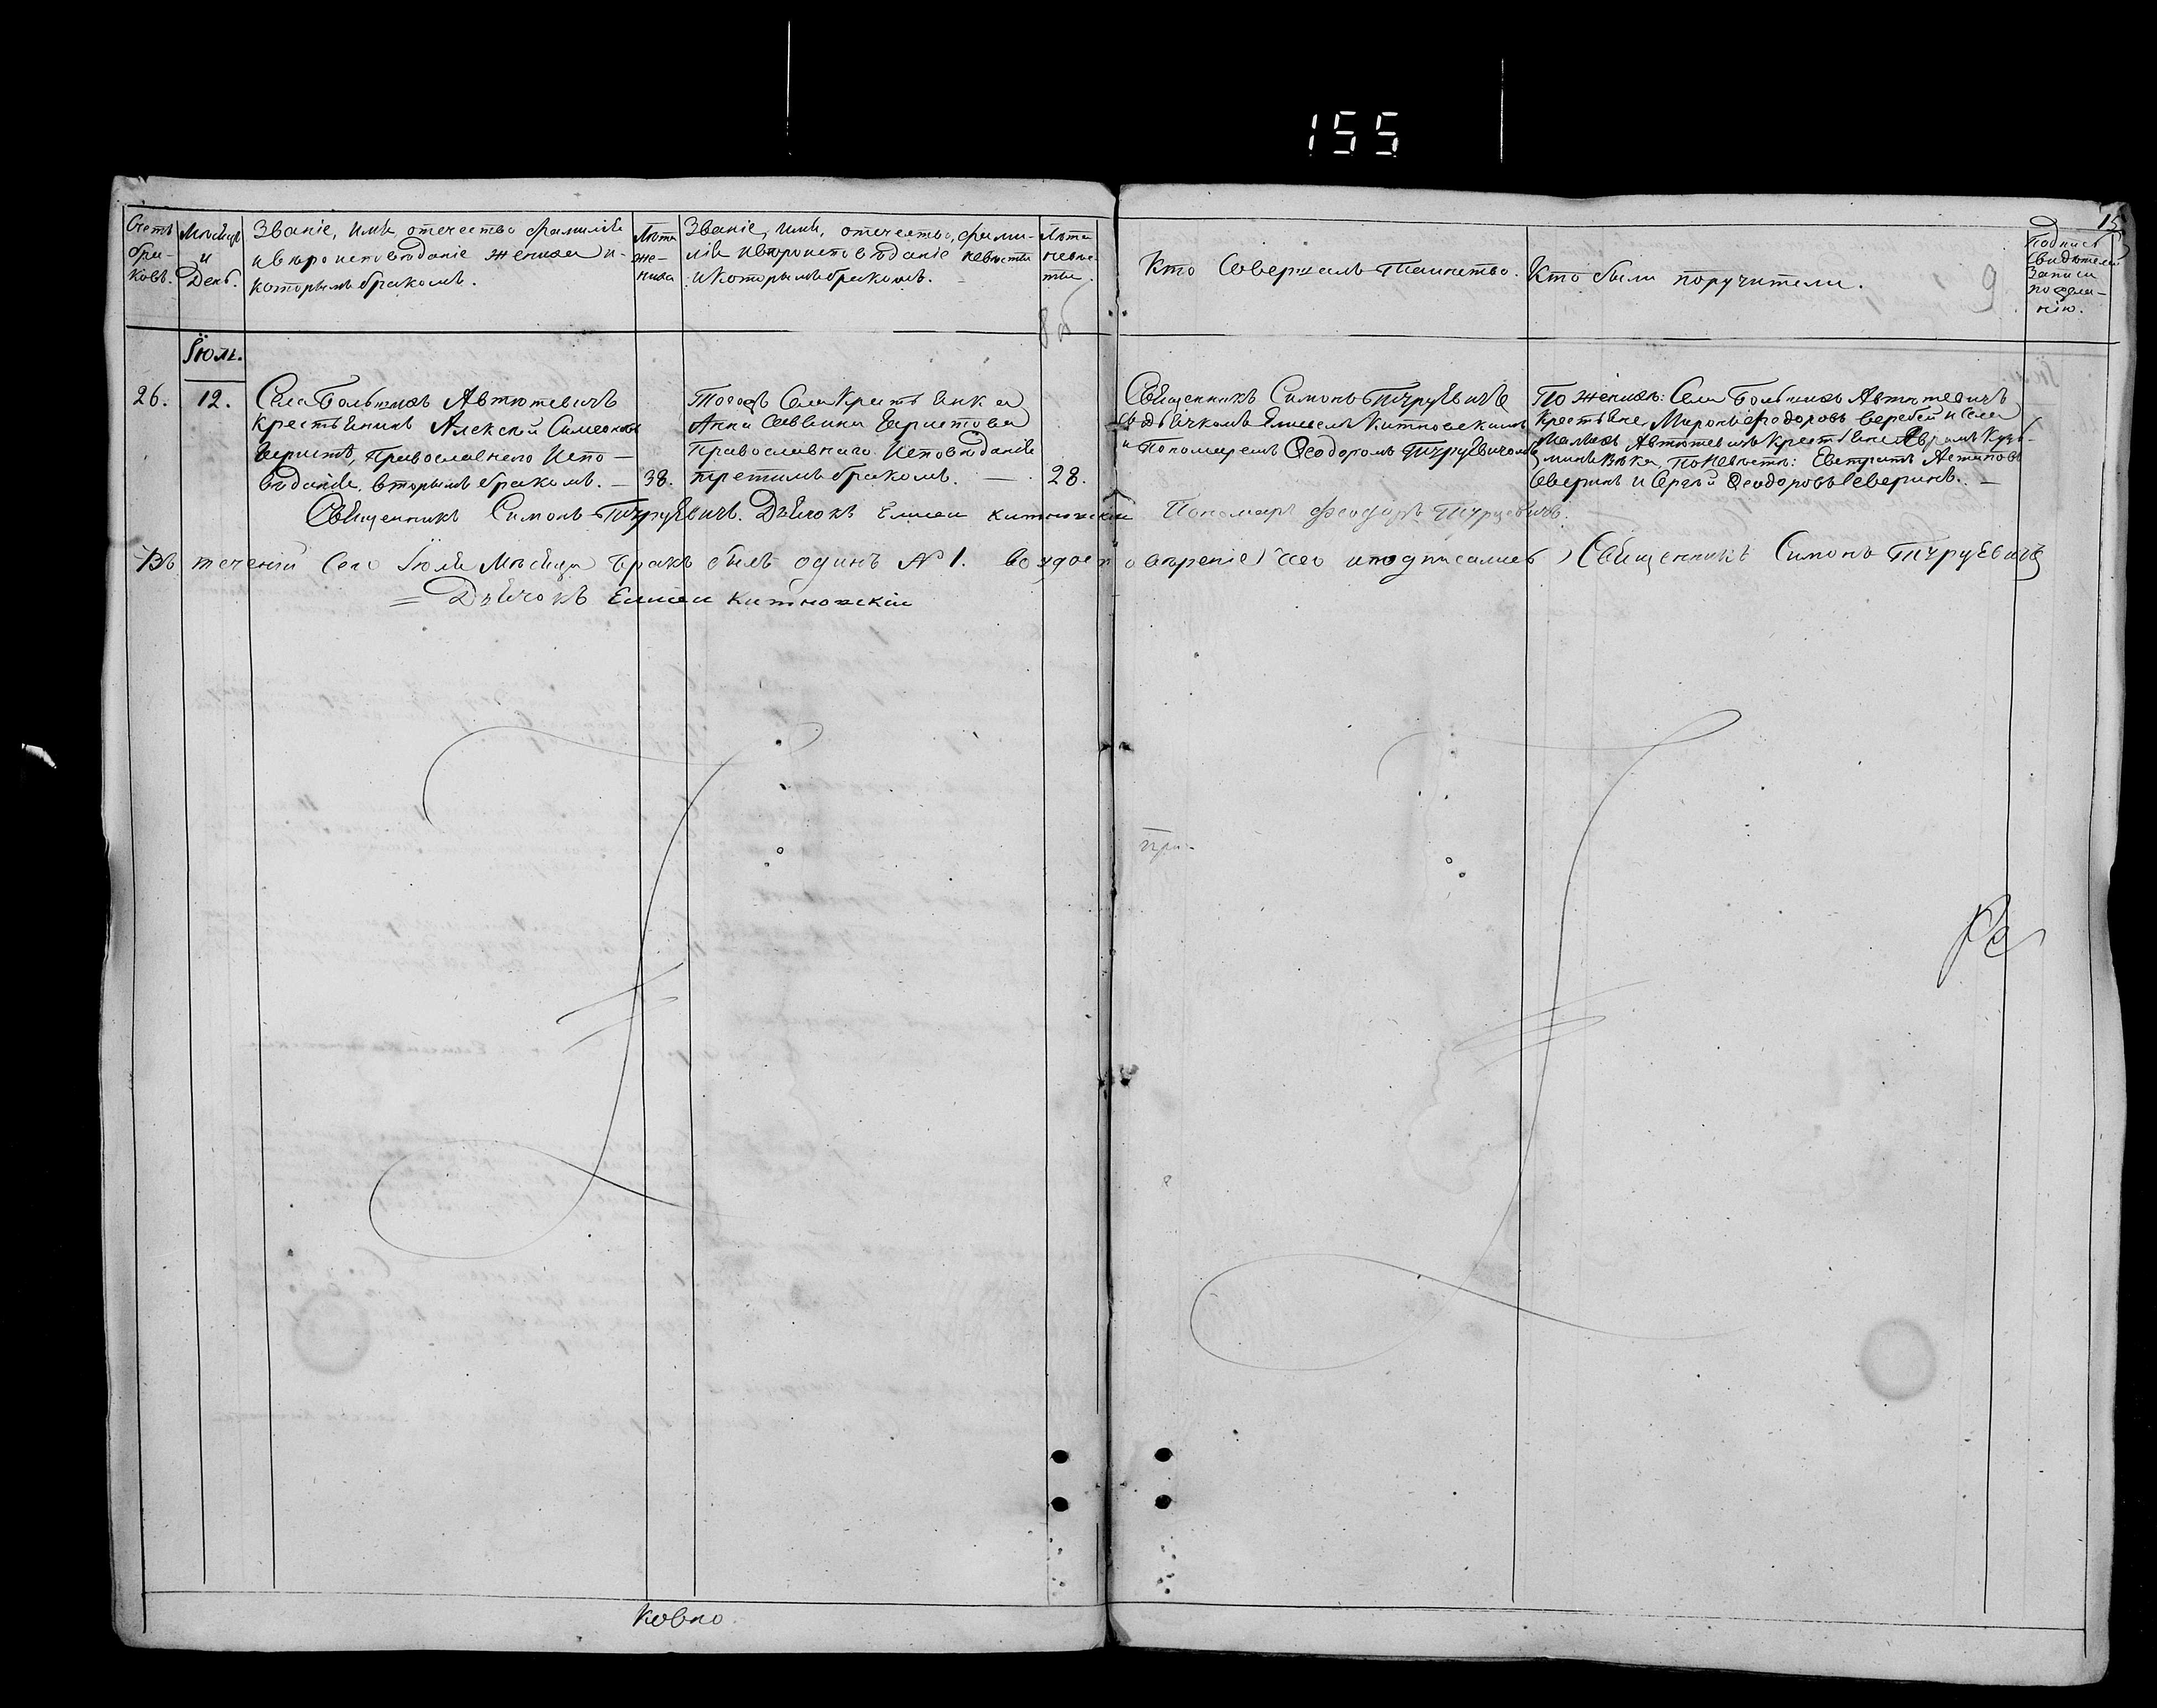 155
15
Счетъ браковъ.
Мѣсяцъ и День.
Званіе, имя, отечество фамилія и вѣроисповѣданіе жениха и которымъ бракомъ.
Лѣта жениха
Званіе, имя, отечество, фамилія и вѣроисповѣданіе невѣсты и которымъ бракомъ.
Лѣта невѣсты.
Кто Совершалъ Таинство.
Кто были поручители.
9
Подпись Свидѣтелей Записи по желанію.
Іюль.
26.
12.
Села Большихъ Автютевичъ
крестьянинъ Алексѣй Симеоновъ
православнаго Испо-
вѣданія, вторымъ бракомъ. —
38.
Тогожъ Села Крестьянка
Анна Саввина
Православнаго Исповѣданія
третимъ бракомъ. —
28.
Священникъ Симонъ Тичруевичъ
съ дьячкомъ Елисеемъ Китновскимъ
и Пономаремъ Ѳеодоромъ Тичруевичомъ
По женихѣ: Села Большихъ Автютевичъ
крестьяне, Миронъ Ѳеодоровъ Веребей и Села
Малыхъ Автютевичъ крестьянинъ Аврамъ Кузь-
минъ Вѣка, По Невѣстѣ: Евстратъ Астаповъ
Северинъ и Сергѣй Ѳеодоровъ Северинъ. —
Священникъ Симонъ Тичруевичъ. Дьячокъ Елисеи Китновскіи Пономарь Феодоръ Тичруевичъ.
Въ теченіи Сего Іюля Мѣсяца бракъ былъ одинъ № 1. во удостовѣреніе чего и подписались Священникъ Симонъ Тичруевичъ
= Дьячокъ Елисеи Китновскіи
при-
Ковно.